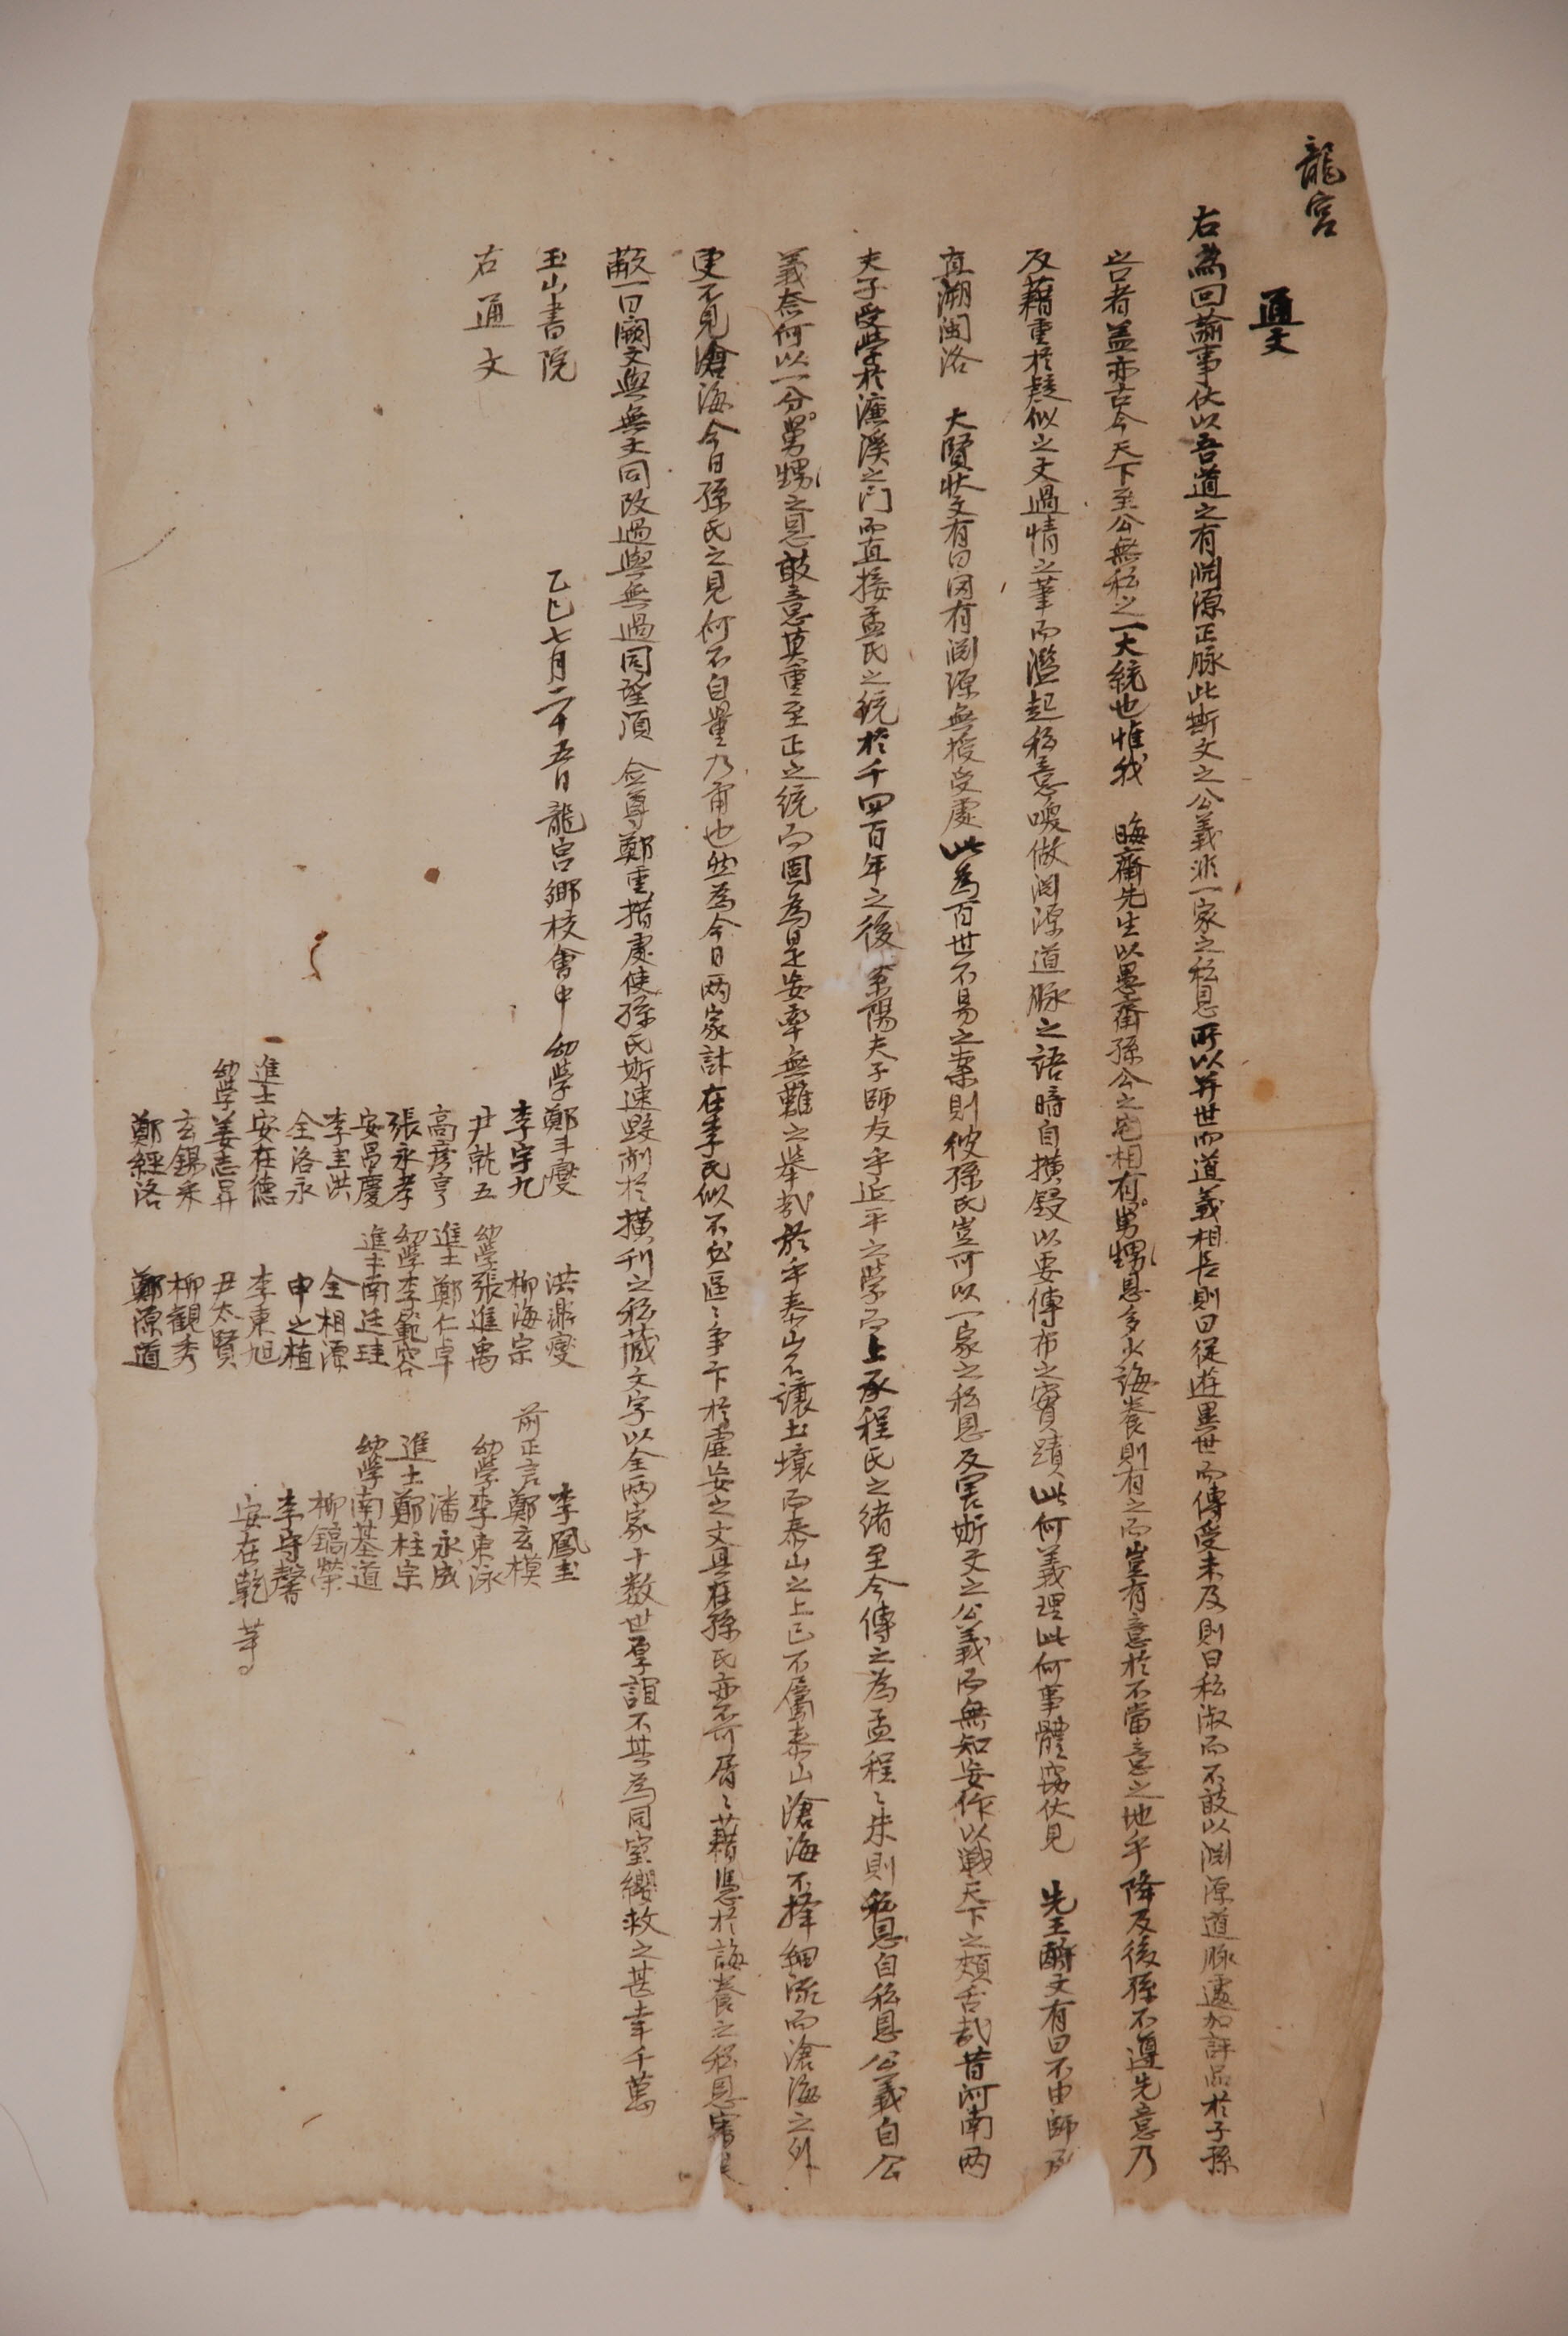 龍宮
通文
右為回諭事伏以吾道之有淵源正脉此斯文之公義非一家之私恩所以并世而道義相長則曰從遊異世而傳受未及則曰私淑而不敢以淵源道脉遽加評品於子孫
之言者盖亦古今天下至公無私之一大統也惟我 晦齋先生以愚齋孫公之宅相有舅甥恩多少誨養則有之而豈有意於不當意之地乎降及後孫不遵先意乃
反藉重於疑似之文過情之筆而濫起私意喚做淵源道脉之語暗自撗鋟以要傳布之實蹟此何義理此何事體窃伏見 先王酹文有曰不由師承
直溯閩洛 大賢狀文有曰因有淵源無授受處此為百世不易之案則彼孫氏豈可以一家之私恩反害斯文之公義而無知妄作以戰天下之頰舌哉昔河南両
夫子受學於濂溪之门而直接孟氏之統於千四百年之後紫陽夫子師友乎延平之學而上承程氏之緒至今傳之為孟程〻朱則私恩自私恩公義自公
義奈何以一分舅甥之恩敢意莫重至正之統而固為是妄率無難之舉哉於乎泰山不讓土壤而泰山之上已不屬泰山滄海不擇細流而滄海之外
更不見滄海今日孫氏之見何不自量乃甭也然為今日両家計在李氏似不必區〻爭下於虛妄之文具在孫氏亦不可屑〻藉憑於誨養之私恩害
蔽一曰闕文與無文同改過與無過同望湏 僉尊鄭重措處使孫氏斯速毁削於撗刊之私蔵文字以全両家十数世厚誼不甚為同室纓救之甚幸千萬
玉山書院
右通文
乙巳七月二十五日龍宮鄉校會中 幼學鄭丰燮 洪鼎燮 李鳳圭
李宇九 柳海宗 前正言鄭玄模
尹就五 幼學張進禹 幼學李東泳
高彦亨 進士鄭仁卓 潘永成
張永孝 幼學李範容 進士鄭柱宗
安昌慶 進士南廷珪 幼學南基道
李圭洪 全相濂 柳鎬榮
全洛永 申之植 李守馨
進士安在德 李東旭 安在乾 等
幼學姜志昇 尹太賢
玄錫采 柳觀秀
鄭經洛 鄭源道